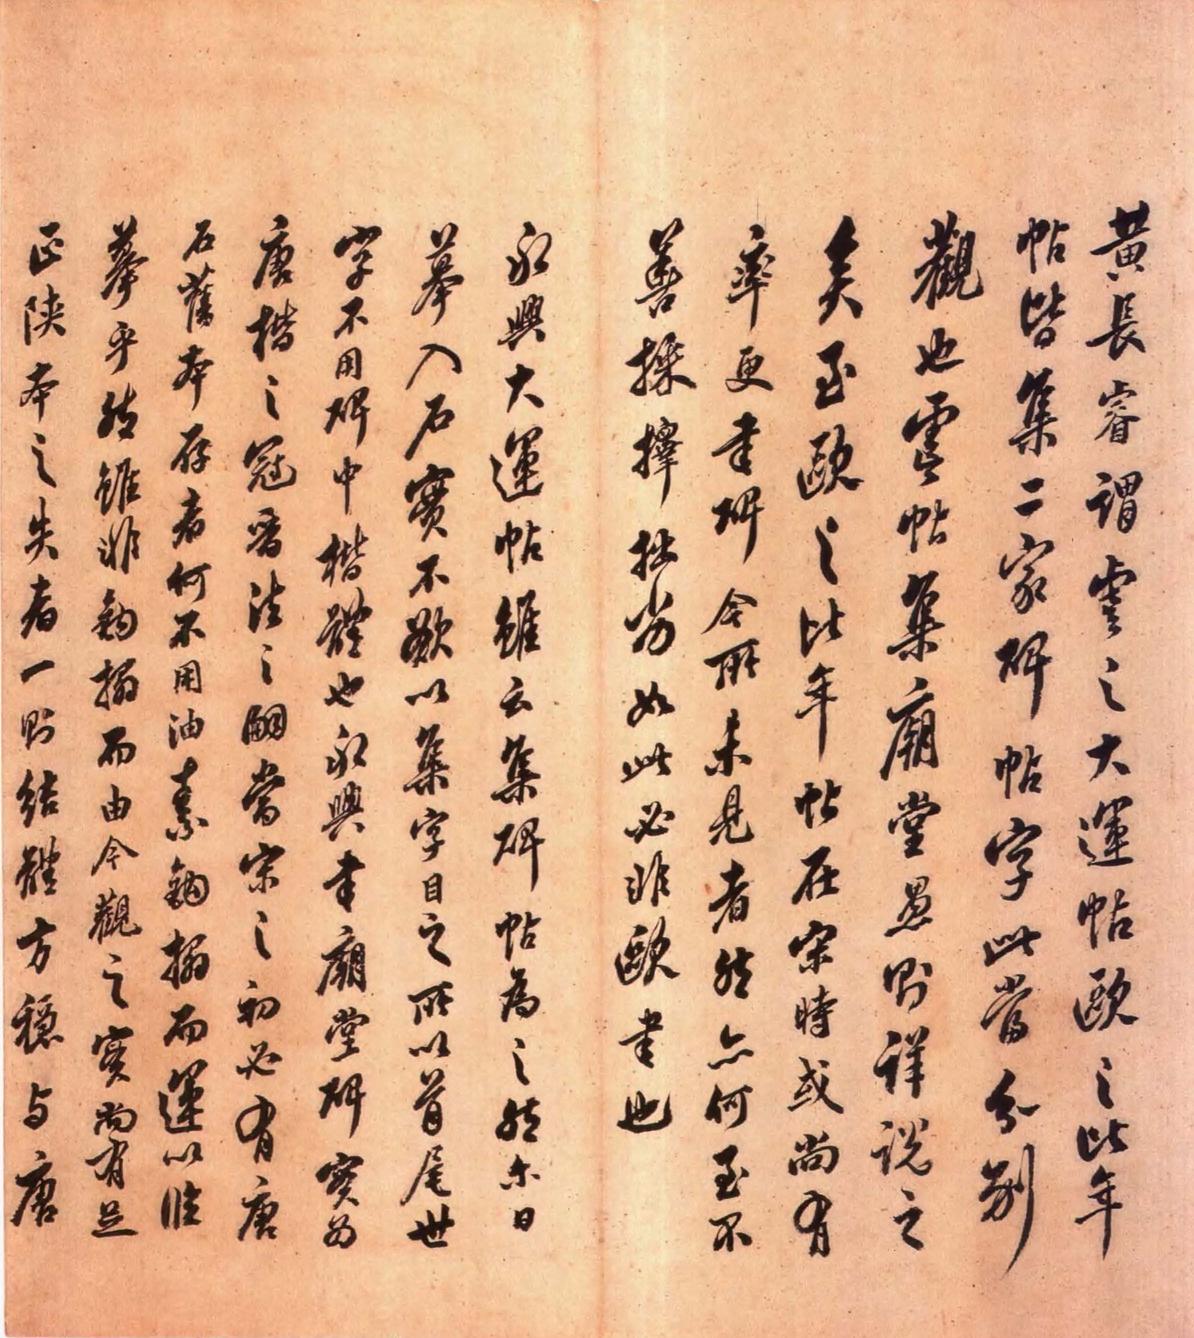 黃長睿謂虞之大運帖歐之比年
帖皆集二家碑帖字此當分別
觀也虞帖集廟堂愚則詳說之
矣至歐之比年帖在宋時或尚有
率更書碑今所未見者然亦何至不
善採擇拙劣如此必非歐書也
永興大運帖雖云集碑帖為之然尒日
摹入石實不欲以集字目之所以首尾世
字不用碑中楷體也永興書廟堂碑實為
唐楷之冠晉法之嗣當宋之初必有唐
石舊本存者何不用油素鉤搨而運以臨
摹乎然雖非鉤搨而由今觀之實尚有足
正陝本之失者一則結體方穩与唐